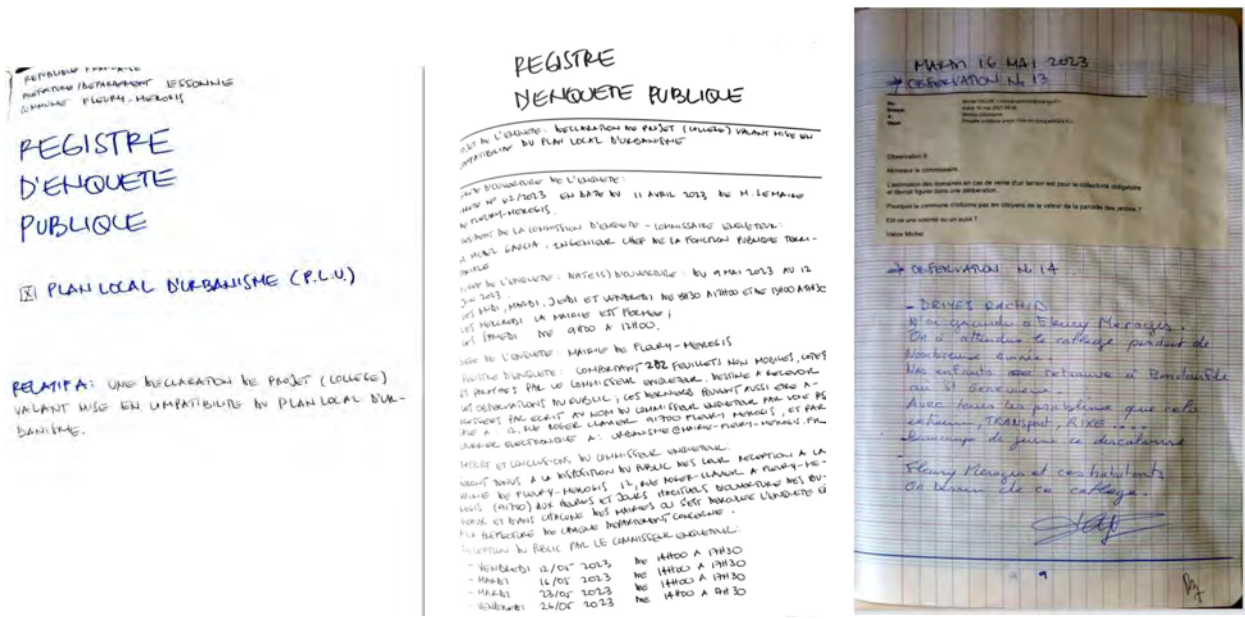 REPUBLIQUE FRANCAISE
PREFECTURE/DEPARTEMENT ESSONNE
COMMUNE FLEURY-MEROGIS
REGISTRE
D'ENQUETE
PUBLIQUE
☒ PLAN LOCAL D'URBANISME (P.L.U.)
RELATIF A: UNE DECLARATION DE PROJET (COLLEGE)
VALANT MISE EN COMPATIBILITE DU PLAN LOCAL D'UR-
BANISME.
REGISTRE
D'ENQUETE PUBLIQUE
DE L'ENQUETE: DECLARATION DE PROJET (COLLEGE) VALANT MISE EN
COMPATIBILITE DU PLAN LOCAL D'URBANISME
D'OUVERTURE DE L'ENQUETE:
N° 62/2023 EN DATE DU 11 AVRIL 2023 DE M. LE MAIRE
DE FLEURY-MEROGIS.
PRESIDENT DE LA COMMISSION D'ENQUETE - COMMISSAIRE ENQUETEUR:
GARCIA, INGENIEUR CHEF DE LA FONCTION PUBLIQUE TERRI-
TORIALE
DE L'ENQUETE: DATE(S) D'OUVERTURE: DU 9 MAI 2023 AU 12
JUIN 2023.
LES LUNDI, MARDI, JEUDI ET VENDREDI DE 8H30 A 12H00 ET DE 13H00 A 17H30
LES MERCREDI LA MAIRIE EST FERMEE;
LES SAMEDI DE 9H00 A 12H00.
SIEGE DE L'ENQUETE: MAIRIE DE FLEURY-MEROGIS
REGISTRE D'ENQUETE: COMPORTANT 202 FEUILLETS NON MOBILES, COTES
ET PARAPHES PAR LE COMMISSEUR ENQUETEUR, DESTINE A RECEVOIR
LES OBSERVATIONS DU PUBLIC; CES DERNIERS PEUVENT AUSSI ETRE A-
DRESSEES PAR ECRIT AU NOM DU COMMISSEUR ENQUETEUR PAR VOIE POS
A: 12, RUE ROGER CLAVIER 91700 FLEURY MEROGIS, ET PAR
COURRIER ELECTRONIQUE A: URBANISME@MAIRIE-FLEURY-MEROGIS.FR
RAPPORT ET CONCLUSIONS DU COMMISSEUR ENQUETEUR:
SERONT TENUS A LA DISPOSITION DU PUBLIC DES LEUR RECEPTION A LA
MAIRIE DE FLEURY-MEROGIS 12, RUE ROGER CLAVIER A FLEURY-ME-
ROGIS (91700) AUX HEURES ET JOURS HABITUELS D'OUVERTURE DES BU-
REAUX ET DANS CHACUNE DES MAIRIES OU S'EST DEROULEE L'ENQUETE ET
A LA PREFECTURE DE CHAQUE DEPARTEMENT CONCERNE.
RECEPTION DU PUBLIC PAR LE COMMISSEUR ENQUETEUR:
- VENDREDI 12/05 2023 DE 14H00 A 17H30
- MARDI 16/05 2023 DE 14H00 A 17H30
- MARDI 23/05 2023 DE 14H00 A 17H30
- VENDREDI 26/05 2023 DE 14H00 A 17H30
MARDI 16 MAI 2023
→ OBSERVATION N. 13
Observation 8
Monsieur le commissaire,
L'estimation des domaines en cas de vente d'un terrain est pour la collectivité obligatoire
et devrait figurer dans une délibération.
Pourquoi la commune n'informe pas les citoyens de la valeur de la parcelle des jardins ?
Est ce une volonté ou un oubli ?
Michel
→ OBSERVATION N. 14
- DRIYES RACHID
N'ai grandu a Fleury Merogis.
On a attendu le college pendant de
Nombreuse année.
Nos enfants se retrouve a Bondoufle
ou St Genevieve.
Avec tous les problème que cela
, TRANSPORT, RIXE ....
Beaucoup de jeune ce
Fleury Merogis et ces habitants
On besoin de ce college.
9